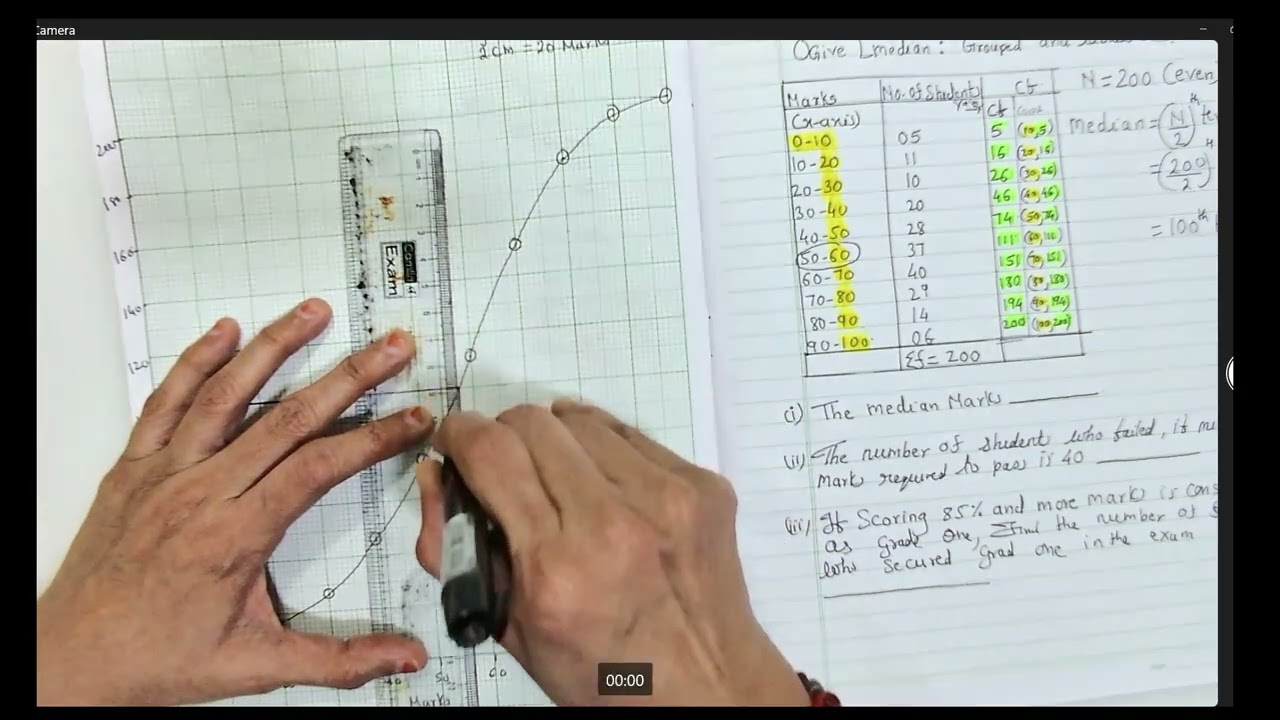 Camera
2cm = 20 Marks
200
180
160
140
120
Exam
50
60
Marks
Ogive [median: Grouped and
Marks (x-axis) No. of Students Cf
Cf
0-10 05 5 (10,5)
10-20 11 16 (20,16)
20-30 10 26 (30,26)
30-40 20 46 (40,46)
40-50 28 74 (50,74)
50-60 37 111 (60,111)
60-70 40 151 (70,151)
70-80 29 180 (80,180)
80-90 14 194 (90,194)
90-100 06 200 (100,200)
Σf = 200
N = 200 (even)
median = (N/2)th
= (200/2)th
= 100th
(i) The median Mark
(ii) The number of student who failed, if
mark required to pass is 40
(iii) If Scoring 85% and more mark is
as grade one, Find the number of
who secured grad one in the exam
00:00